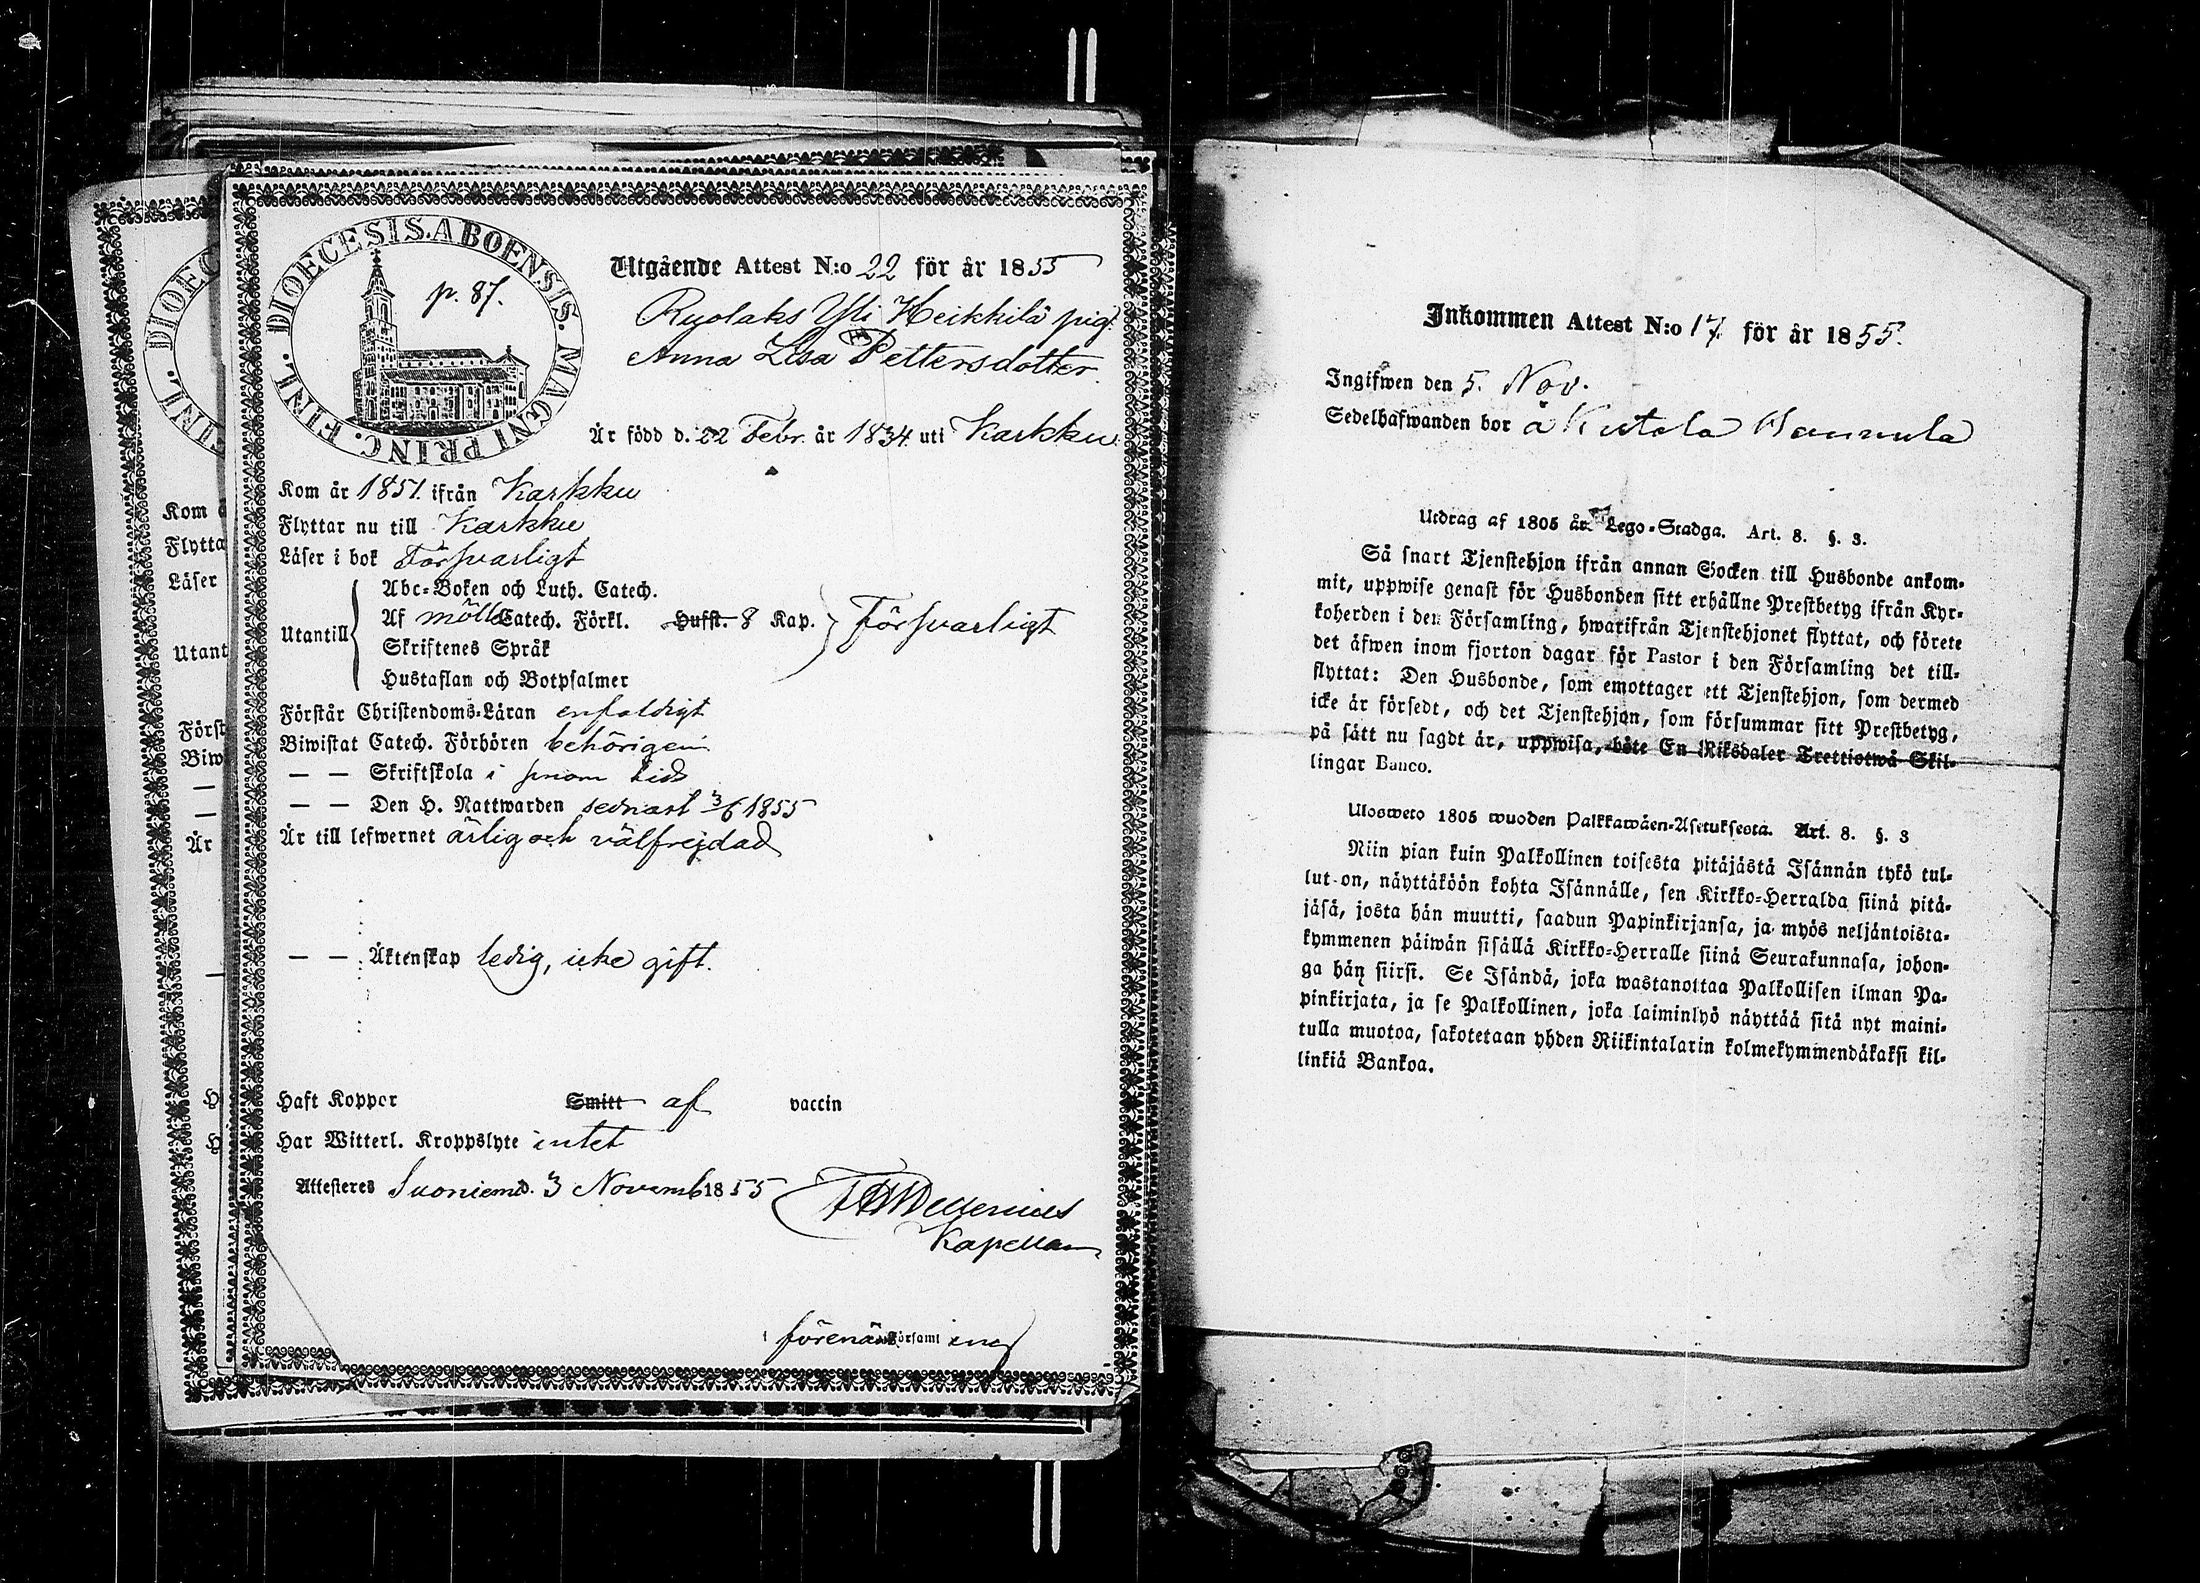 DIOECESIS.ABOENSIS.MAGNI PRINC. FINL.
p. 87.
Utgående Attest N:o 22 för år 1855
Ryolaks Yli Heikkilä pig.
Anna Lisa Pettersdotter.
Är född d. 22 Febr. år 1834 uti Karkku
Kom år 1851 ifrån Karkku
Flyttar nu till Karkku
Läser i bok Försvarligt
Utantill
Abc-Boken och Luth. Catech.
Af möll Catech. Förkl. Hufst. 8 Kap. Försvarligt
Skriftenes Språk
Hustaflan och Botpsalmer
Förstår Christendoms-Läran enfaldigt
Biwistat Catech. Förhören behörigen
— — Skriftskola i sinom tid
— — Den H. Nattwarden sednast 3/6 1855
Är till lefwernet ärlig och välfrejdad
— — Äktenskap ledig, icke gift.
Haft Koppor Smitt af vaccin
Har Witterl. Kroppslyte intet
Attesteras Suoniemi d. 3 Novemb 1855
Kapellan
i förenämd Församl ing
DIOEC
INL.
Kom å
Flytta
Läser
Utant
Först
Biw
—
—
Är
—
H
H
Inkommen Attest N:o 17. för år 1855.
Ingifwen den 5. Nov.
Sedelhafwanden bor å Kutala Hannula
Utdrag af 1805 års Lego-Stadga. Art. 8. §. 3.
Så snart Tjenstehjon ifrån annan Socken till Husbonde ankom-
mit, uppwise genast för Husbonden sitt erhållne Prestbetyg ifrån Kyr-
koherden i den Församling, hwarifrån Tjenstehjonet flyttat, och förete
det äfwen inom fjorton dagar för Pastor i den Församling det till-
flyttat: Den Husbonde, som emottager ett Tjenstehjon, som dermed
icke är försedt, och det Tjenstehjon, som försummar sitt Prestbetyg,
på sätt nu sagdt är, uppwisa, böte En Riksdaler Trettiotwå Skil-
lingar Banco.
Ulosweto 1805 wuoden Palkkawäen-Asetuksesta. Art. 8. §. 3
Niin pian kuin Palkollinen toisesta pitäjästä Isännän tykö tul-
lut on, näyttäköön kohta Isännälle, sen Kirkko-Herralda siinä pitä-
jäsä, josta hän muutti, saadun Papinkirjansa, ja myös neljäntoista-
kymmenen päiwän sisällä Kirkko-Herralle siinä Seurakunnasa, johon-
ga hän siirsi. Se Isändä, joka wastanottaa Palkollisen ilman Pa-
pinkirjata, ja se Palkollinen, joka laiminlyö näyttää sitä nyt maini-
tulla muotoa, sakotetaan yhden Riikintalarin kolmekymmendäkaksi kil-
linkiä Bankoa.